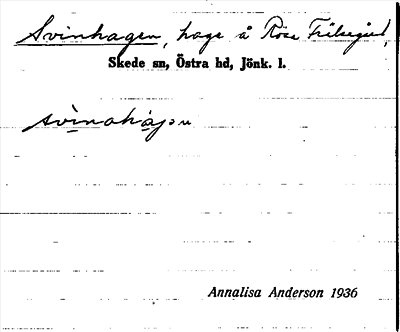 Svinhagen, hage å Röse Frälsegård,
Skede sn, Östra hd, Jönk. l.
svinahagen
Annalisa Anderson 1936